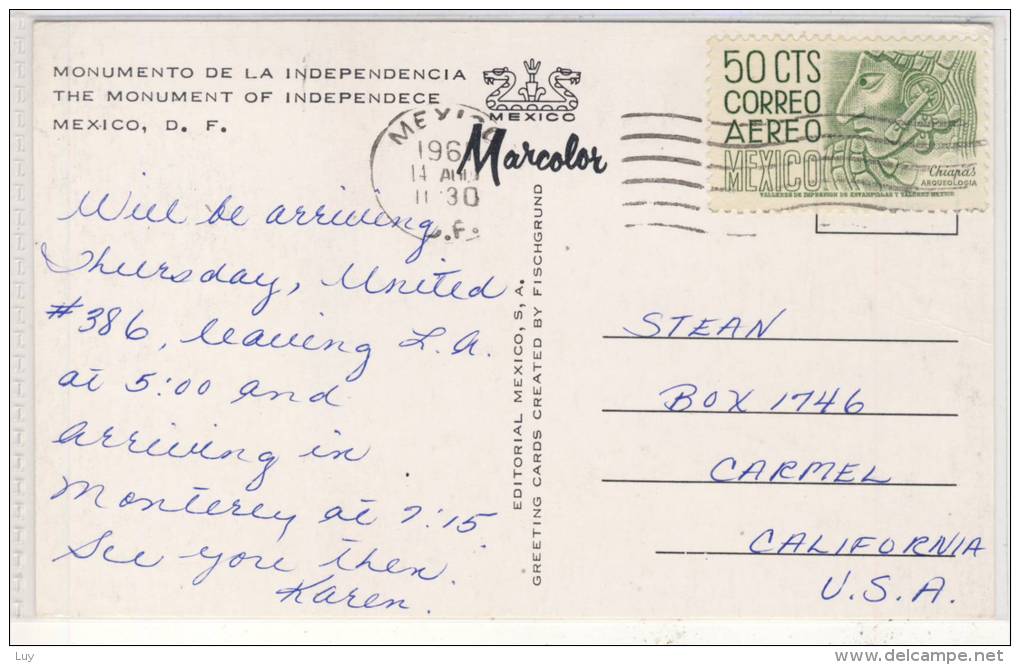 MONUMENTO DE LA INDEPENDENCIA
THE MONUMENT OF INDEPENDECE
MEXICO, D. F.
MEXICO
Marcolor
MEXICO
196
14 AUG
11 30
D.F.
50 CTS
CORREO
AEREO
MEXICO
Chiapas
ARQUEOLOGIA
TALLERES DE IMPRESION DE ESTAMPILLAS Y VALORES MEXICO
Will be arriving
Thursday, United
#386, leaving L.A.
at 5:00 and
arriving in
Monterey at 7:15.
See you then.
Karen.
EDITORIAL MEXICO, S, A.
GREETING CARDS CREATED BY FISCHGRUND
STEAN
BOX 1746
CARMEL
CALIFORNIA
U.S.A.
Luy
www.delcampe.net